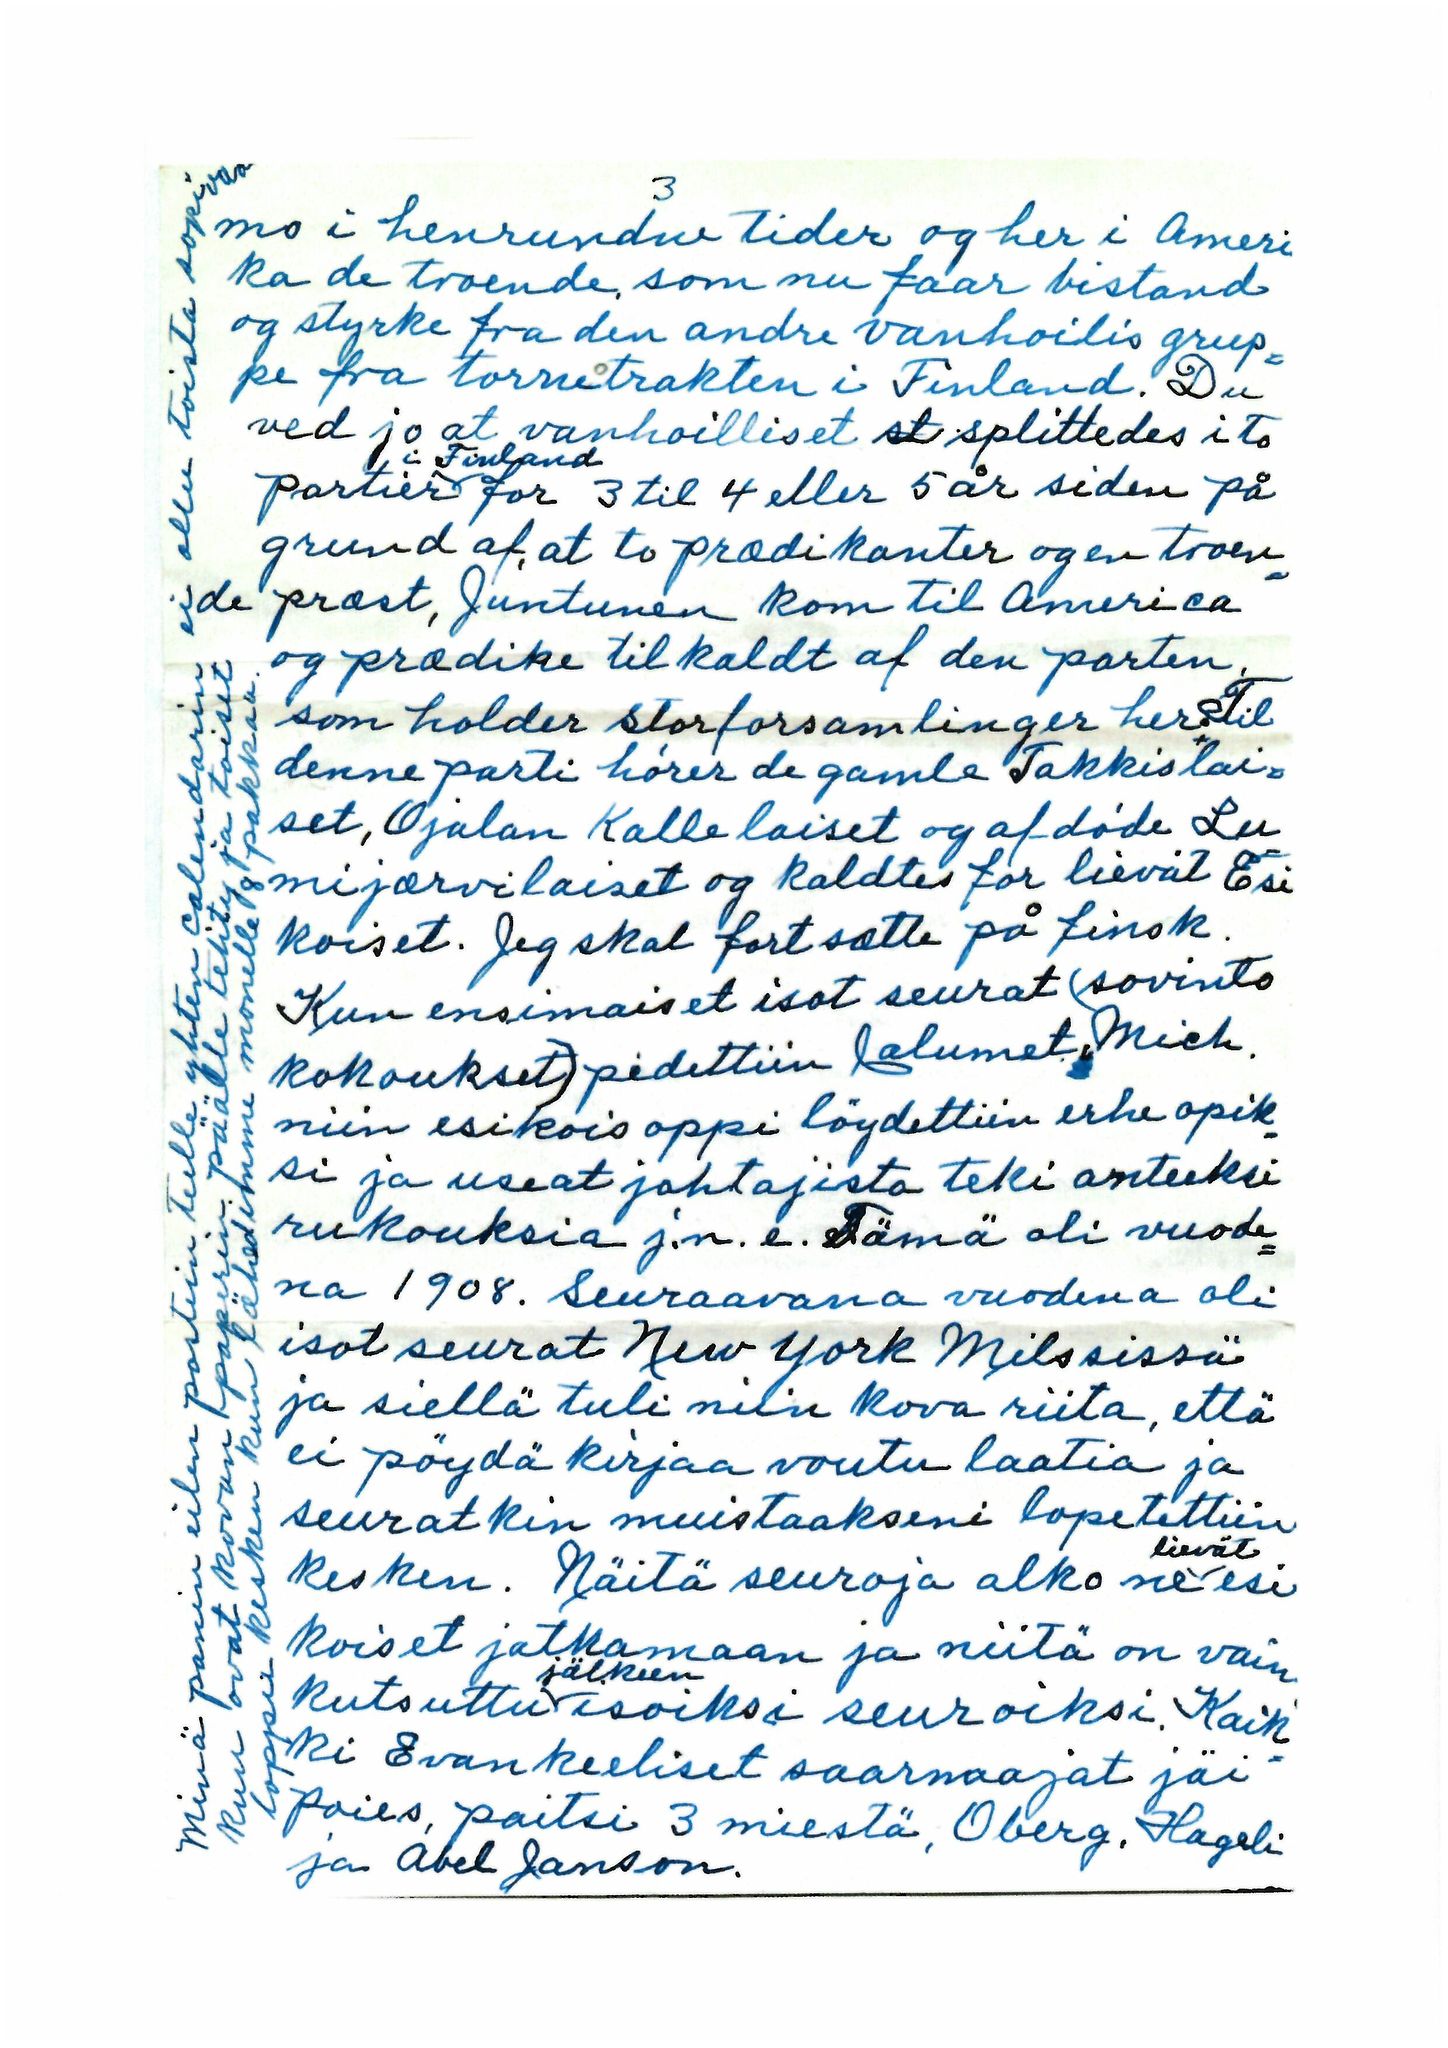 3
mo i henrundne tider og her i Ameri
ka de troende, som nu faar bistand
og styrke fra den andre vanhoilis grup=
pe fra tornetrakten i Finland. Du
ved jo at vanhoilliset splittedes i to
partier i Finland for 3 til 4 eller 5 år siden på
grund af, at to prædikanter og en troen=
de præst, Juntunen kom til America
og prædike tilkaldt af den parten,
som holder storforsamlinger her. Til
denne parti hører de gamle Takkislai=
set, Ojalan Kallelaiset og afdøde Lu=
mijærvilaiset og kaldtes for lievät Esi
koiset. Jeg skal fortsætte på finsk.
Kun ensimaiset isot seurat (sovinto
kokoukset) pidettiin Calumet, Mich.
niin esikois oppi löydettiin erhe opik=
si ja useat johtajista teki anteeksi
rukouksia j.n.e. Tämä oli vuode=
na 1908. Seuraavana vuodena oli
isot seurat New York Milssissä
ja siellä tuli niin kova riita, että
ei pöydä kirjaa voutu laatia ja
seuratkin muistaakseni lopetettiin
kesken. Näitä seuroja alko ne lievät esi
koiset jatkamaan ja niitä on vain
kutsuttu jälkeen isoiksi seuroiksi. Kaik=
ki Evankeeliset saarnaajat jäi
poies, paitsi 3 miestä, Oberg, Hageli
ja Abel Janson.
Minä panin eilen postiin tulle yhten calendarin ei ollu toista sopivaa
kun ovat kovan paperin päälle tehty ja toiset
loppui kesken kun lähedimme monelle 8 pakkaa.